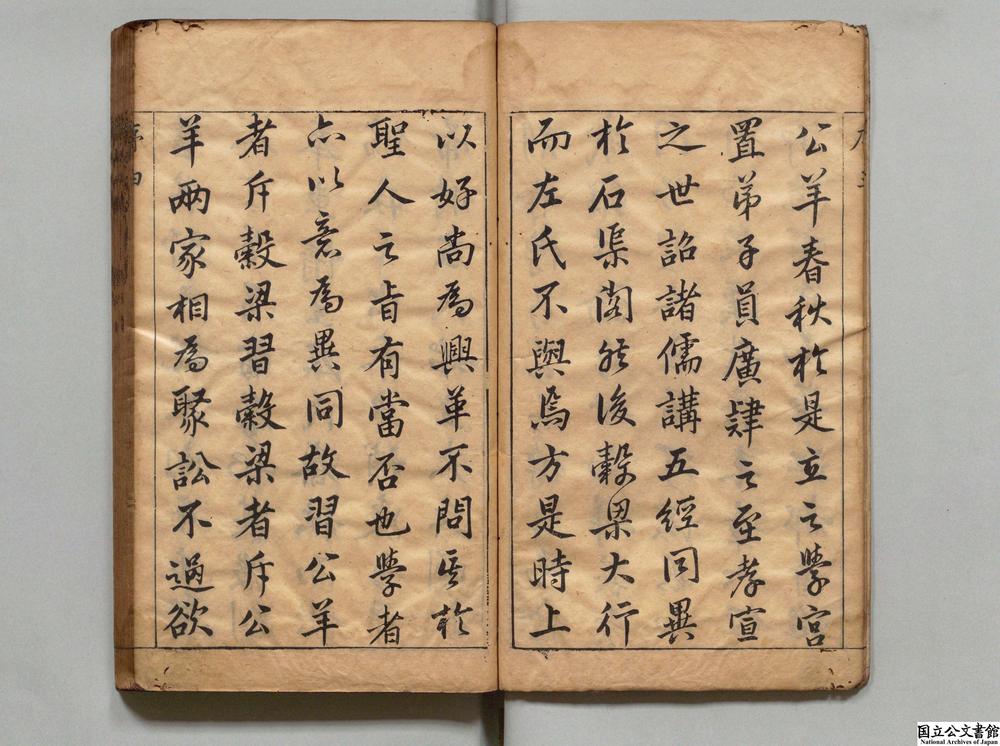 公羊春秋於是立之學宮
置弟子員廣肄之至孝宣
之世詔諸儒講五經同異
於石渠閣然後穀梁大行
而左氏不與焉方是時上
以好尚為興革不問其於
聖人之旨有當否也學者
亦以意為異同故習公羊
者斥穀梁習穀梁者斥公
羊兩家相為聚訟不過欲
序四
国立公文書館
National Archives of Japan